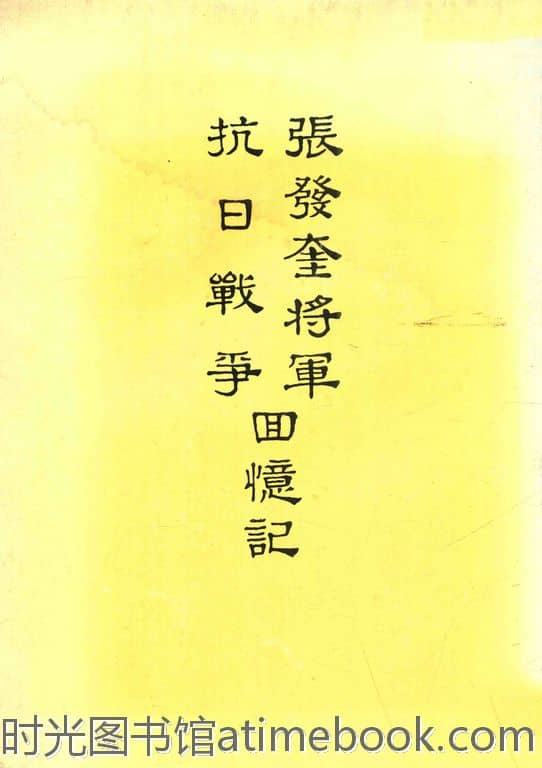 張發奎將軍
抗日戰爭
回憶記
时光图书馆atimebook.com